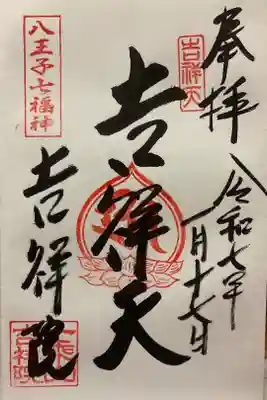 奉拝
令和七年
一月十七日
吉祥天
吉祥天
八王子七福神
吉祥院